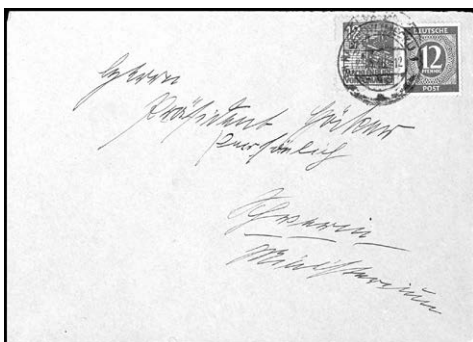 12
DEUTSCHE
12
PFENNIG
POST
Herrn
Präsident Höcker
persönlich
Schwerin
Ministerium